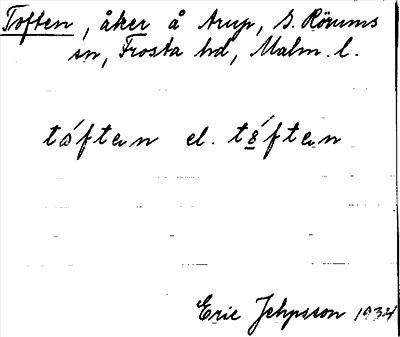 Toften, åker å Arup, S. Rörums
sn, Frosta hd, Malm. l.
tåften el. tåften
Eric Jehpsson 1934